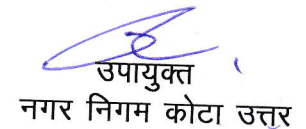 उपायुक्त
नगर निगम कोटा उत्तर